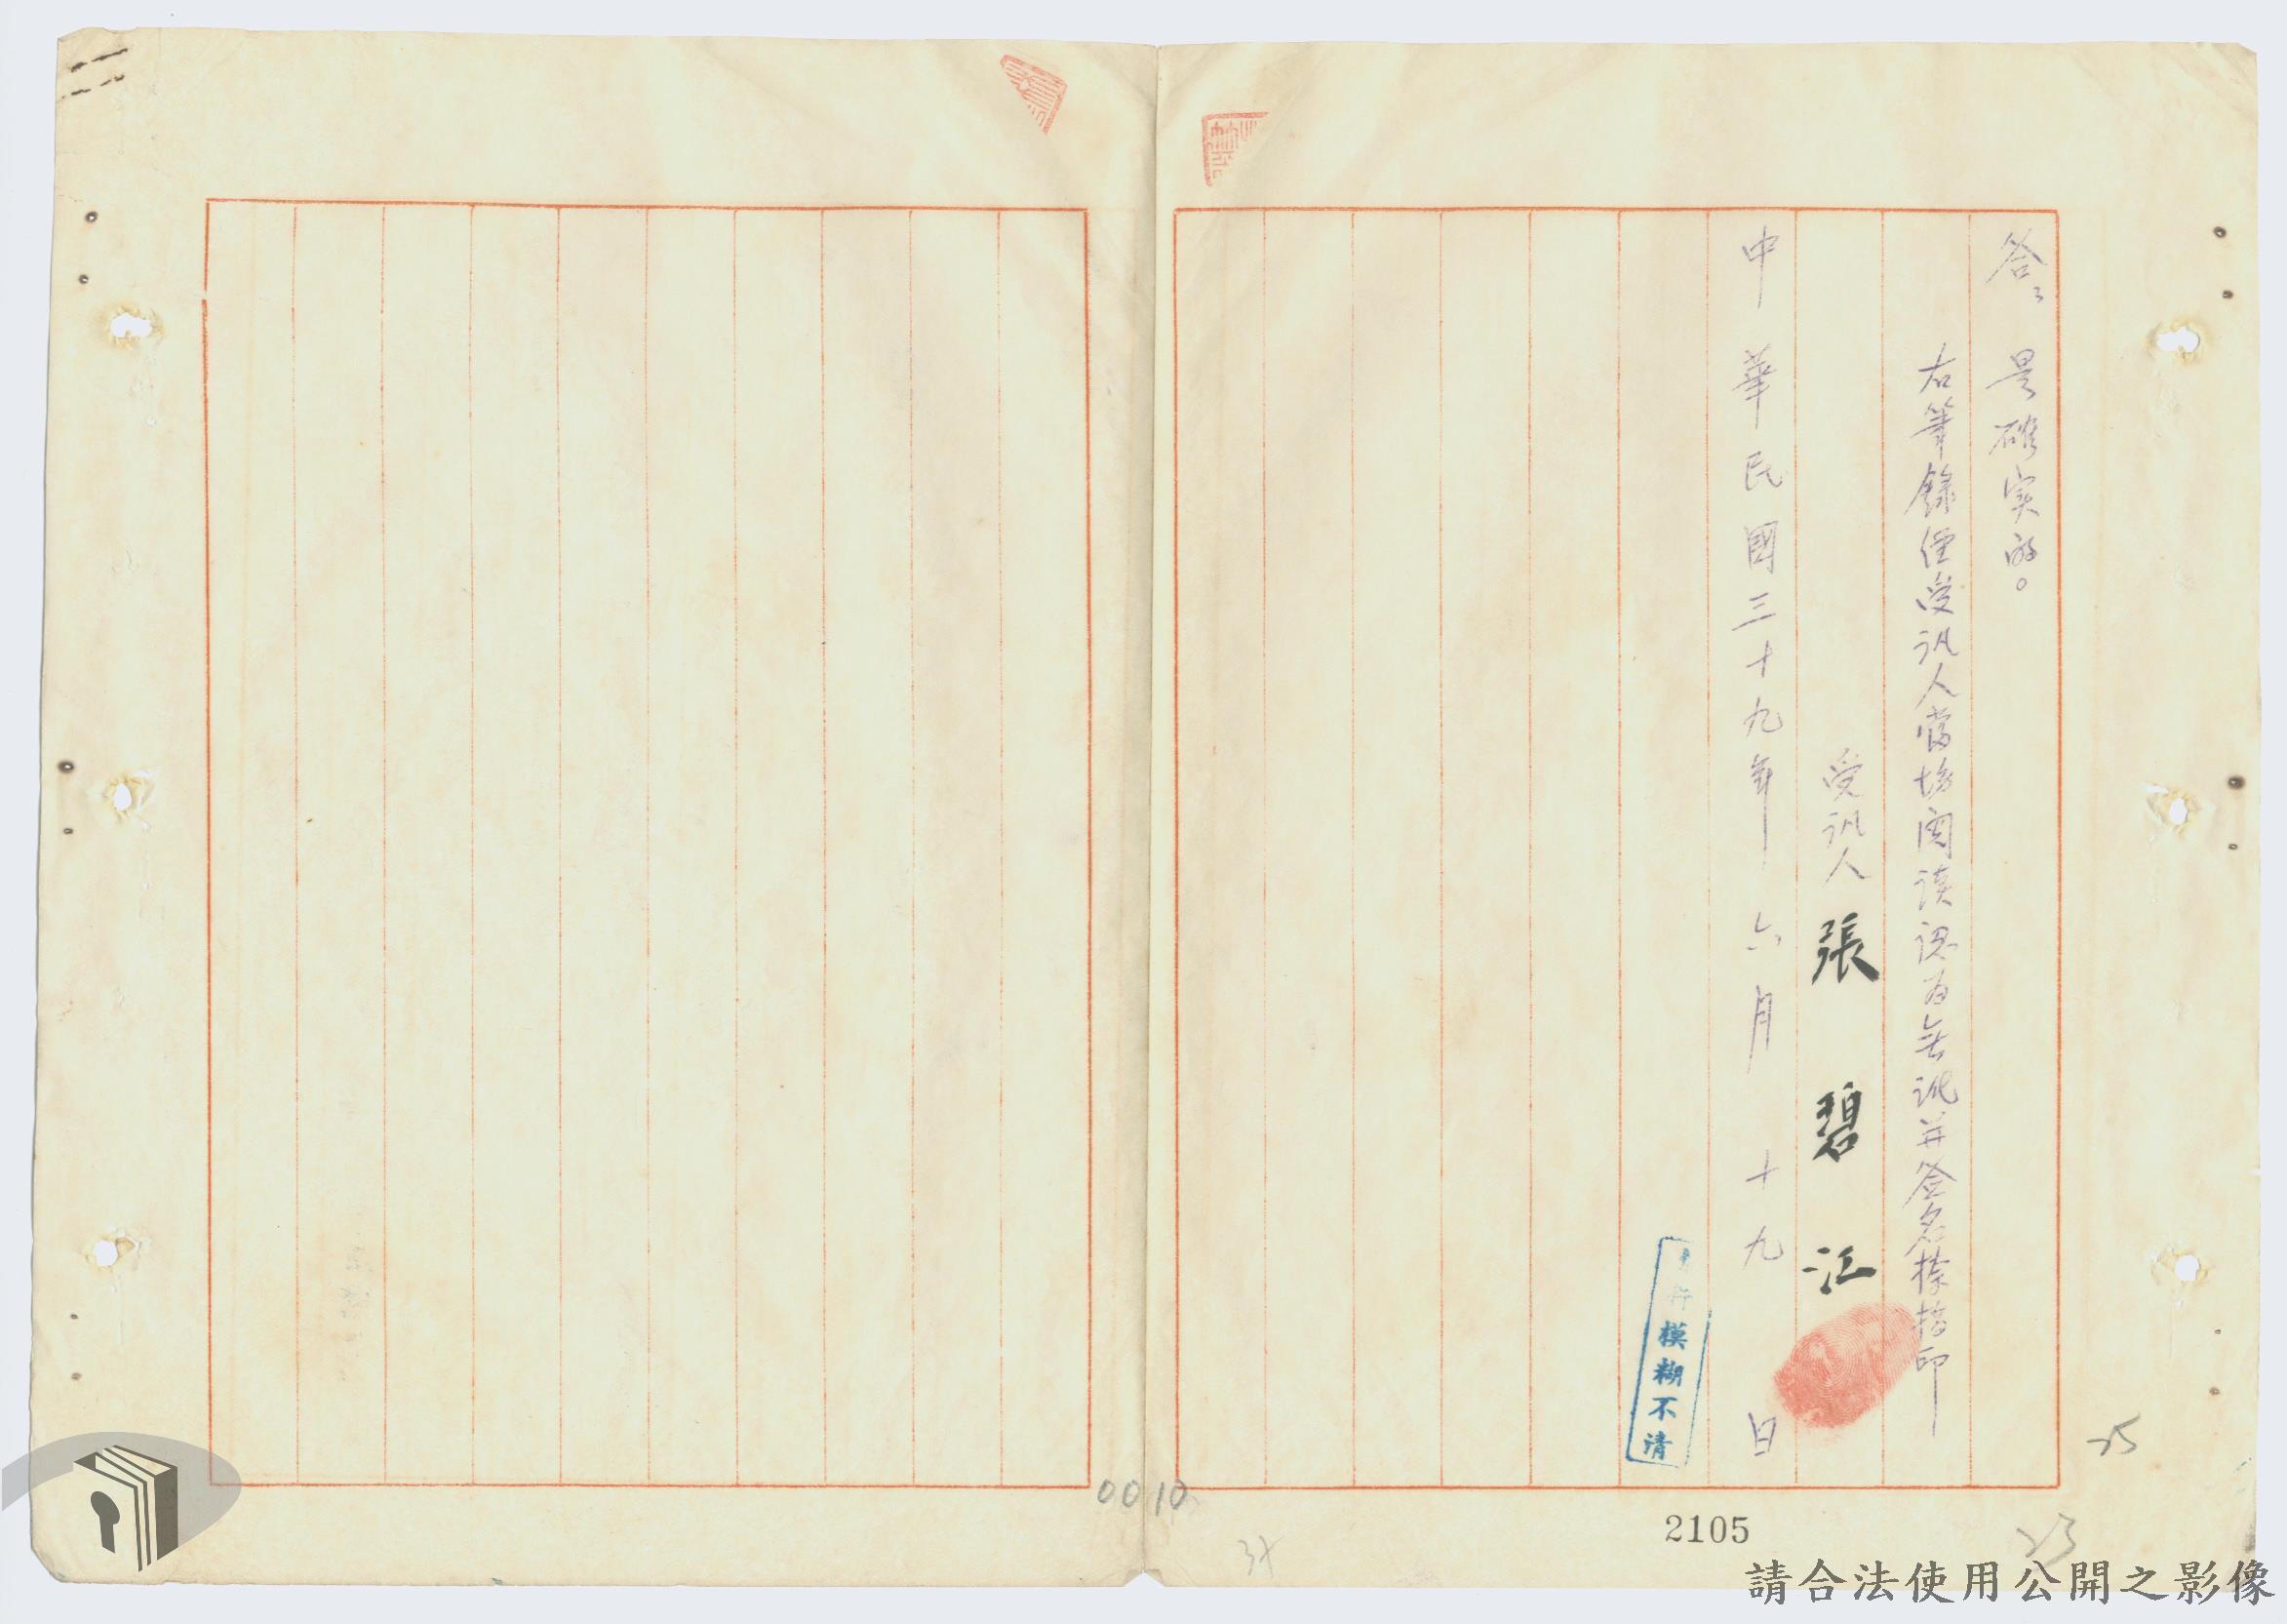 答：是確实的。
右筆錄經受訊人當場閱讀認為無訛并簽名捺指印
受訊人 張碧江
中華民國三十九年六月十九日
模糊不清
0010
2105
25
23
34
請合法使用公開之影像